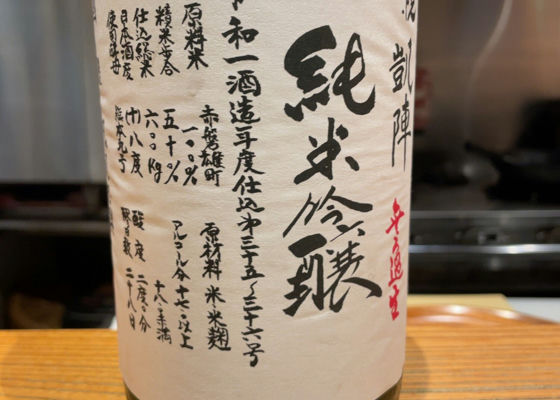 悦凱陣
無ろ過生
純米吟醸
令和一酒造年度仕込第三十五〜三十六号
原料米 赤磐雄町
一〇〇%
精米歩合 五十%
仕込総米 六〇〇kg
日本酒度 (十)八度
使用酵母 熊本九号
原材料 米 米麹
アルコール分 十七以上
十八未満
酸度
醪日数 二十八日